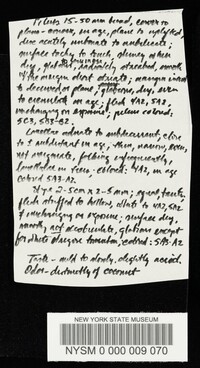 Pileus 15-50 mm broad, convex to
plano-convex, in age, plane to uplifted,
disc acutely umbonate to umbilicate;
surface tacky to touch, shiny when
dry, glabrous, radiately streaked, smooth
of the margin disc ; margin incurved
to decurved or plane, glabrous, dry, even
to crenulate in age; flesh 4A2, 5A2,
unchanging on exposure; pileus colored:
5C3, 5B3-B2.
Lamellae adnate to subdecurrent, close
to subdistant in age, thin, narrow, even,
not marginate, forking infrequently,
lamellulae in tiers. colored: 4A2, in age
colored 5A3-A2.
Stipe 2-5 cm x 2-5 mm; equal, terete,
flesh stuffed to hollow, white to 4A2, 5A2
unchanging on exposure; surface dry,
smooth, not scrobiculate, glabrous except
for white strigose tomentum, colored: 5B3-A2
Taste - mild to slowly, slightly acrid.
Odor - distinctly of coconut
NEW YORK STATE MUSEUM
NYSM 0 000 009 070